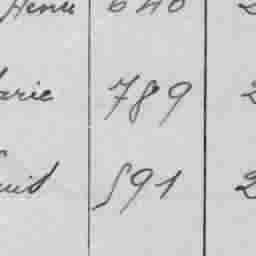 Henri 640 2
arie 789 2
uis 591 2